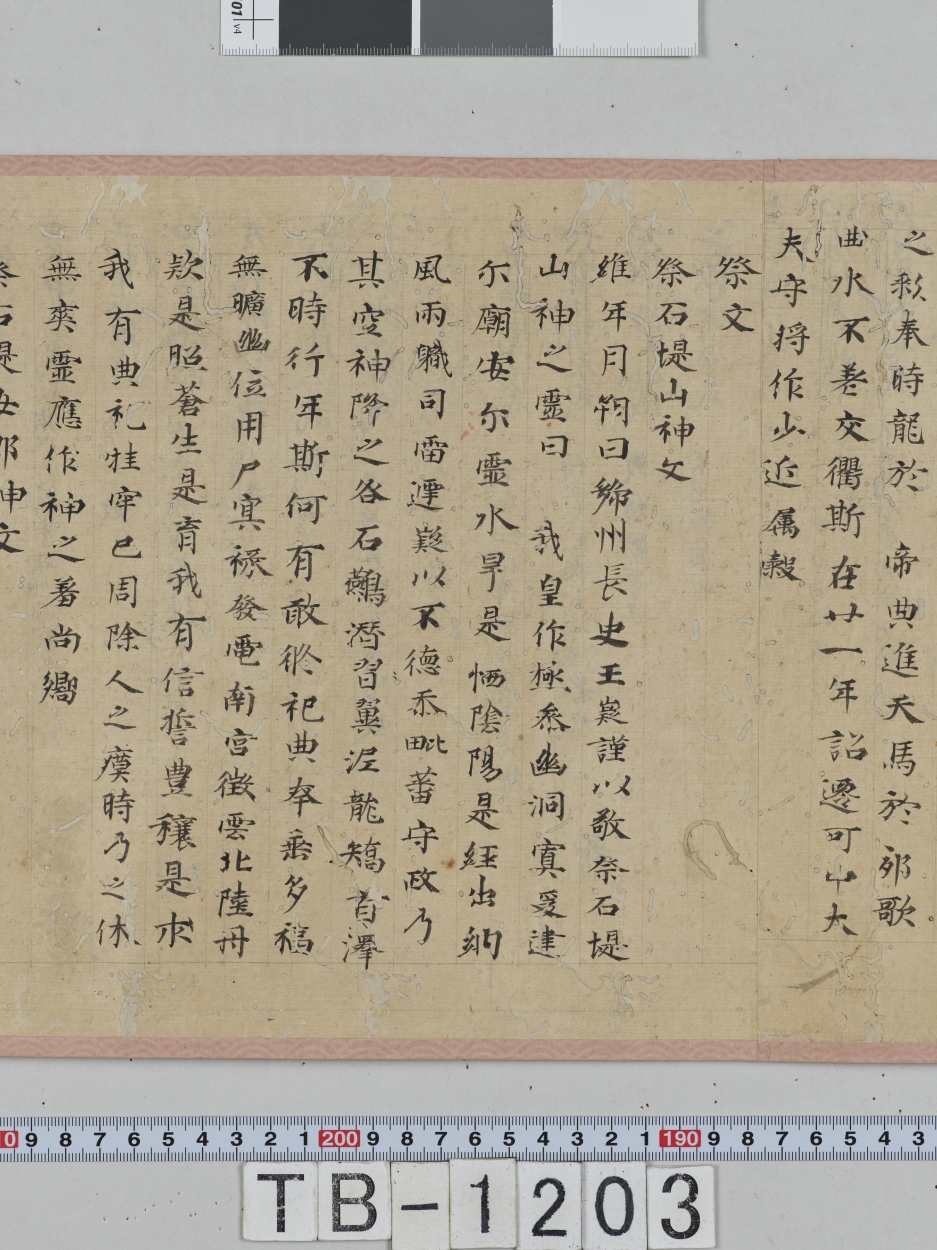 之彩奉時龍於 帝典進天馬於郊歌
曲水不養交衢斯在廿一年詔遷可中大
夫守將作少近属穀
祭文
祭石堤山神文
維年月朔日綿州長史王嶷謹以敬祭石堤
山神之靈曰 我皇作極叅幽洞冥爰建
尔廟安尔靈水旱是恓陰陽是經出納
風雨職司雷遲嶷以不德忝毗蕃守政乃
其空神降之咎石鷰潛習翼泥龍矯首澤
不時行年斯何有敢終祀典奉垂多福
無曠幽位用尸寅禄發電南宮徵雲北陸丹
欵是照蒼生是育我有信誓豊穰是求
我有典祀牲牢已周除人之瘼時乃之休
無爽靈應作神之著尚嚮
祭石堤女郎神文
TB-1203
01 V4
0 9 8 7 6 5 4 3 2 1 200 9 8 7 6 5 4 3 2 1 190 9 8 7 6 5 4 3